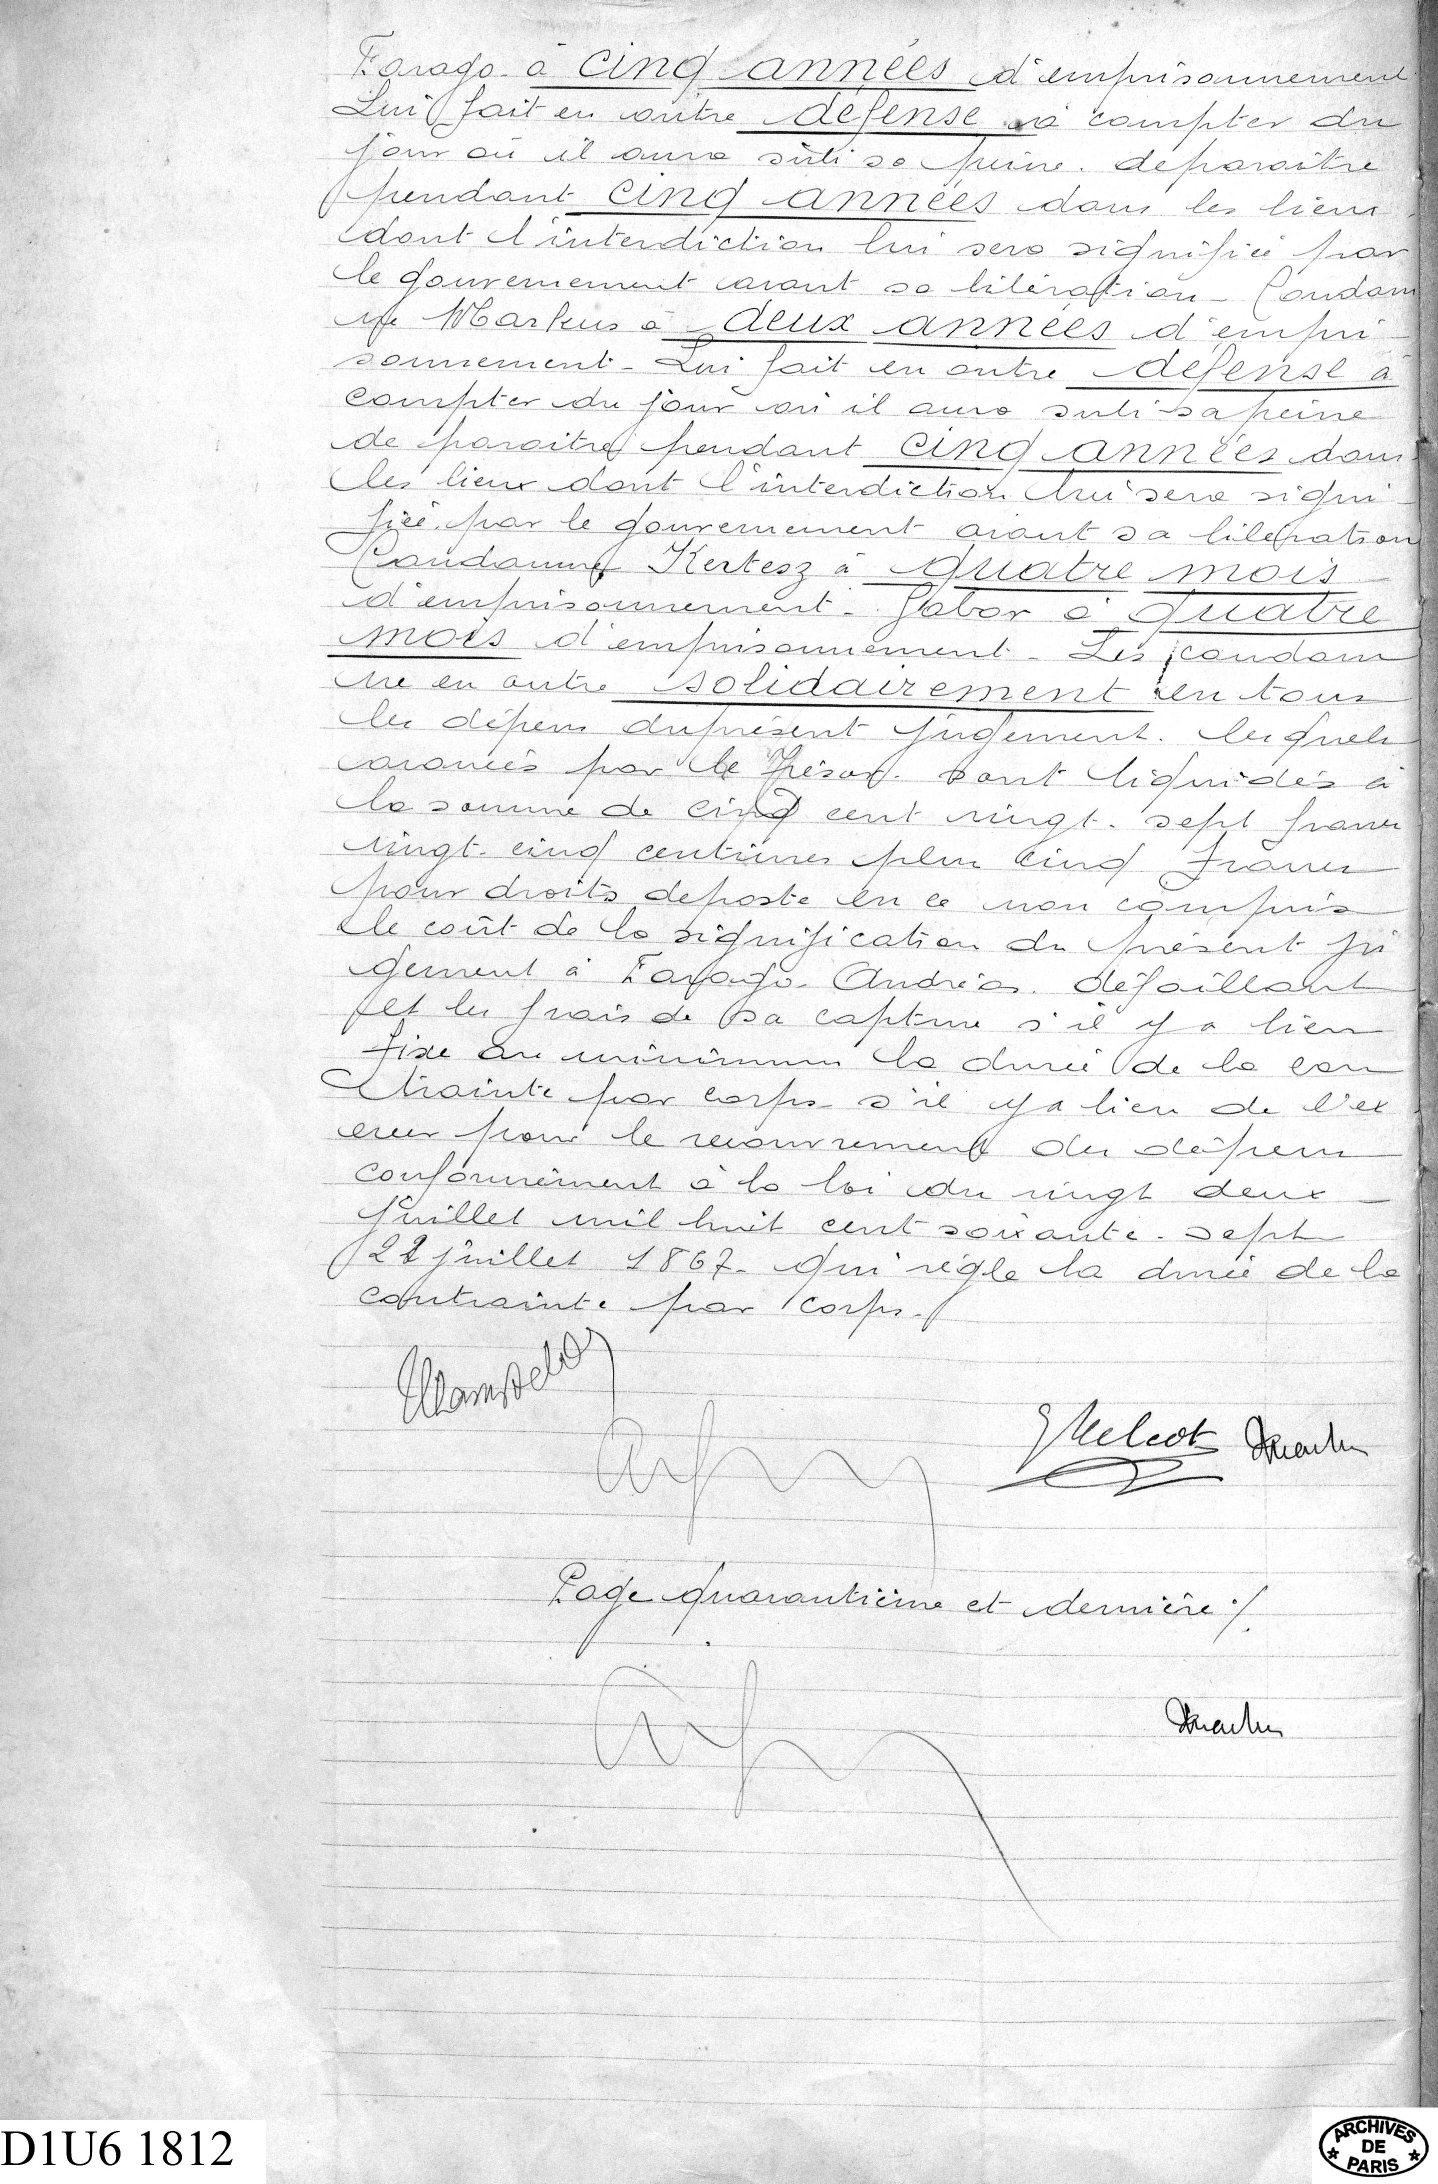 Farago. à cinq années d'emprisonnement
Lui fait en outre défense à compter du
jour où il aura subi sa peine. de paraître
pendant cinq années dans les lieux
dont l'interdiction lui sera signifiée par
le gouvernement avant sa libération - Condam
ne Markus à deux années d'empri-
sonnement - Lui fait en outre défense à
compter du jour où il aura subi sa peine
de paraitre pendant cinq années dans
les lieux dont l'interdiction lui sera signi-
fiée. par le gouvernement avant sa libération
Condamne Kertesz à quatre mois
d'emprisonnement - Gabor à quatre
mois d'emprisonnement - Les condam
ne en outre solidairement en tous
les dépens du présent jugement. lesquels
avancés par le Trésor. sont liquidés à
la somme de cinq cent vingt-sept francs
vingt-cinq centimes plus cinq francs
pour droits de poste en ce non compris
le coût de la signification du présent ju
gement à Farago Andréas. défaillant
et les frais de sa capture s'il y a lieu
fixe au minimum la durée de la con
trainte par corps s'il y a lieu de l'ex
ercer pour le recouvrement des dépens
conformément à la loi du vingt deux -
juillet mil huit cent soixante-sept
22 juillet 1867 - qui règle la durée de la
contrainte par corps.
Page quarantième et dernière ./.
D1U6 1812
ARCHIVES
DE
PARIS